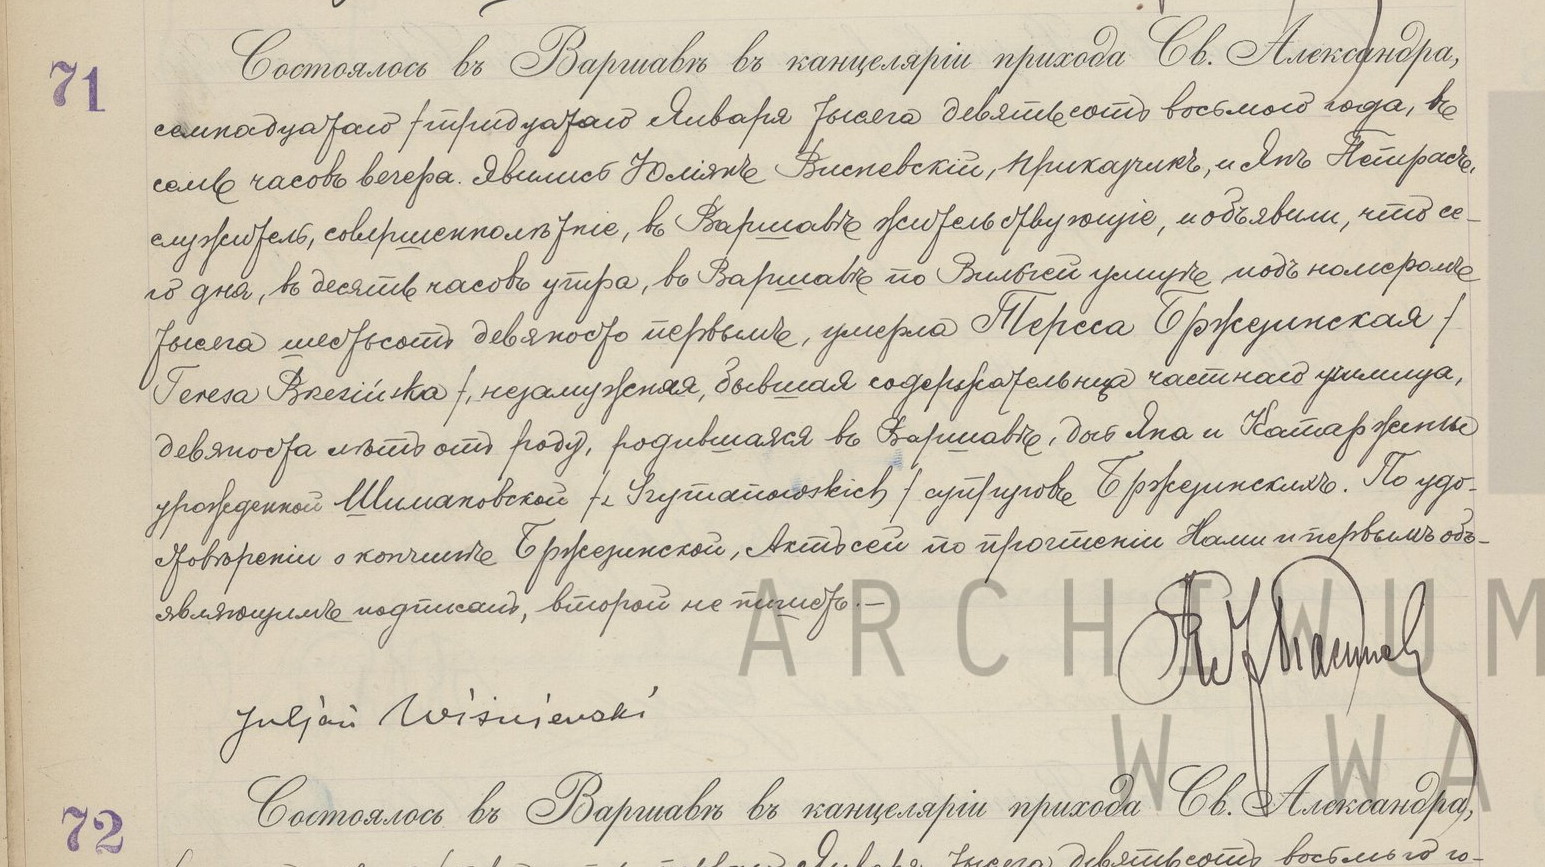 71
Состоялось въ Варшавѣ въ канцеляріи прихода Св. Александра,
семнадцатаго /тридцатаго Января тысяча девятьсотъ восьмого года, въ
семь часовъ вечера. Явились Юліянъ Висневскій, приказчикъ, и Янъ Петрасъ,
служитель, совершеннолѣтніе, въ Варшавѣ жительствующіе, и объявили, что се-
го дня, въ десять часовъ утра, въ Варшавѣ по Вильчей улицѣ подъ номеромъ
тысяча шестьсотъ девяносто первымъ, умерла Тереса Бржезинская /
Teresa Brzezińska /, незамужняя, бывшая содержательница частнаго училища,
девяноста лѣтъ отъ роду, родившаяся въ Варшавѣ, дочь Яна и Катаржины
урожденной Шимановской /z Szymanowskich/ супруговъ Бржезинскихъ. По удо-
стовѣреніи о кончинѣ Бржезинской, Актъ сей по прочтеніи Нами и первымъ объ-
являющимъ подписанъ, второй не пишетъ.—
ARCHIWUM
Juljan Wiśniewski
W WA
72
Состоялось въ Варшавѣ въ канцеляріи прихода Св. Александра,
Января тысяча девятьсотъ восьмого го-